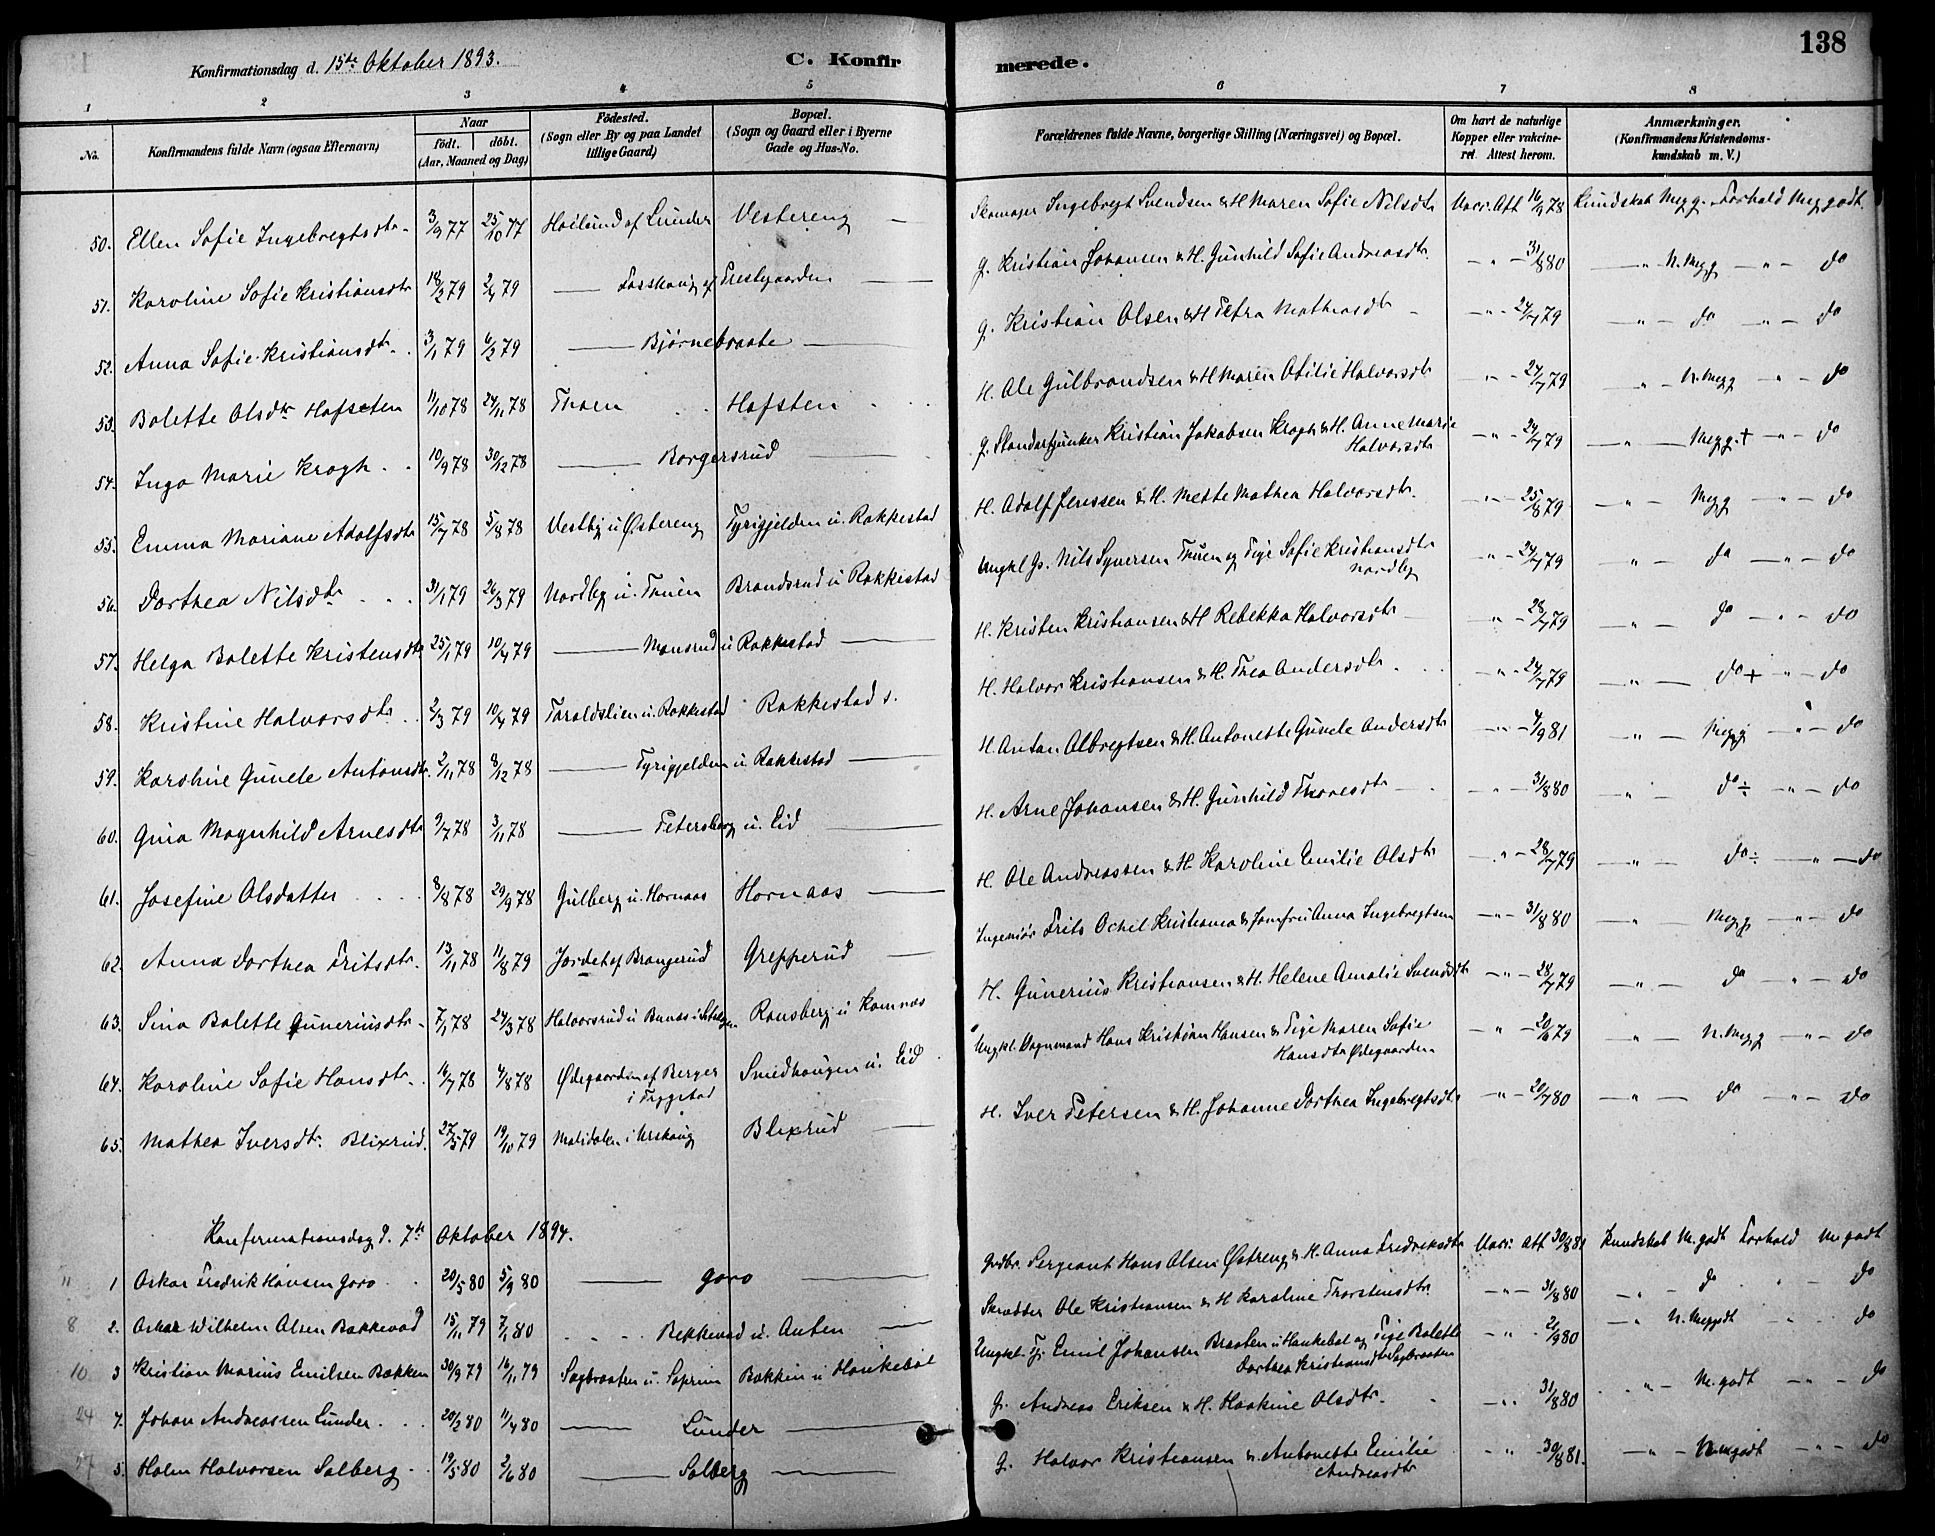 138
Konfirmationsdag d. 15de Oktober 1893.
C. Konfirmerede.
1 2 3 4 5 6 7 8
No.
Konfirmandens fulde Navn (ogsaa Efternavn)
Naar
födt. döbt.
(Aar, Maaned og Dag)
Födested.
(Sogn eller By og paa Landet
tillige Gaard)
Bopæl.
(Sogn og Gaard eller i Byerne
Gade og Hus-No.
Forældrenes fulde Navne, borgerlige Stilling (Næringsvei) og Bopæl.
Om havt de naturlige
Kopper eller vakcine-
ret. Attest herom.
Anmærkninger.
(Konfirmandens Kristendoms-
kundskab m. V.)
50. Ellen Sofie Ingebregtsdtr. 3/9 77 25/10 77 Høilund af Lunder Vestereng — Skomager Ingebregt Svendsen & H Maren Sofie Nilsdtr Vacc. Att 16/9 78 Kundskab Meg g. Forhold Meg godt.
51. Karoline Sofie Kristiansdtr 18/2 79 2/4 79 — Fosshaug af Prestegaarden — G. Kristian Johansen & H. Gunhild Sofie Andreasdtr. — " — 31/8 80 — " — N. Meg g — " — do
52. Anna Sofie Kristiansdtr. 3/1 79 6/2 79 — Bjørnebraate — G. Kristian Olsen & H Petra Mathiasdtr — " — 24/7 79 — " — do — " — do
53. Bolette Olsdtr Hofsten 11/10 78 24/11 78 Thoen Hofsten H. Ole Gulbrandsen & H Maren Otilie Halvorsdtr — " — 24/7 79 — " — N. Meg g — " — do
54. Inga Marie Krogh 10/9 78 30/12 78 — Borgersrud — G. Standartjunker Kristian Jakobsen Krogh & H. Anne Marie
Halvorsdtr — " — 24/7 79 — " — Meg g. + — " — do
55. Emma Mariane Adolfsdtr 15/7 78 5/8 78 Vestby u Østereng Tyrigjelden u. Rakkestad H. Adolf Jenssen & H. Mette Mathea Halvorsdtr. — " — 25/8 79 — " — Meg g — " — do
56. Dorthea Nilsdtr 31/1 79 26/3 79 Nordby u. Thuen Brandsrud u Rakkestad Ungkl Gs. Nils Syversen Thuen og Pige Sofie Kristiansdtr
Nordby — " — 24/7 79 — " — do — " — do
57. Helga Bolette Kristensdtr 25/1 79 10/4 79 — Monsrud u Rakkestad — H. Kristen Kristiansen & H Rebekka Halvorsdtr — " — 28/7 79 — " — do — " — do
58. Kristine Halvorsdtr 2/3 79 10/4 79 Taraldslien u. Rakkestad Rakkestad s. H. Halvor Kristiansen & H. Thea Andersdtr. — " — 24/7 79 — " — do + — " — do
59. Karoline Gunele Antonsdtr. 2/11 78 8/12 78 — Tyrigjelden u. Rakkestad — H. Anton Albregtsen & H. Antonette Gunele Andersdtr — " — 4/9 81 — " — Meg g — " — do
60. Gina Magnhild Arnesdtr 9/7 78 3/11 78 — Petersberg u. Eid — H. Arne Johansen & H. Gunhild Thoresdtr — — " — 31/8 80 — " — do ÷ — " — do
61. Josefine Olsdatter 8/8 78 29/9 78 Gulberg u. Hornaas Hornaas — H. Ole Andreassen & H. Karoline Emilie Olsdtr — " — 28/7 79 — " — do ÷ — " — do
62. Anna Dorthea Fritsdtr. 13/11 78 11/8 79 Jordet af Brangerud Grepperud — Ingeniør Frits Ochel Kristiania & Jomfru Anna Ingebregtsen — " — 31/8 80 — " — Meg g — " — do
63. Sina Bolette Guneriusdtr. 7/1 78 24/3 78 Halvorsrud u Bunæs Ransberg u Kamnæs H. Gunerius Kristiansen & H. Helene Amalie Svendsdtr — " — 28/7 79 — " — do " — do
64. Karoline Sofie Hansdtr. 16/7 78 4/8 78 Ødegaarden af Berger
i Trygstad Smedhaugen u. Eid Ungkl. Vognmand Hans Kristian Hansen & Pige Maren Sofie
Hansdtr Ødegaarden — " — 20/6 79 — " — N. Meg g — " — do
65. Mathea Iversdtr. Blixrud. 27/5 79 19/10 79 Matidalen i Urskoug Blixrud — H. Iver Petersen & H. Johanne Dorthea Ingebregtsdtr — " — 20/7 80 — " — do — " — do
Konfirmationsdag d. 7de Oktober 1894.
11 1 Oskar Fredrik Hansen Goro 20/5 80 5/9 80 — Goro — Grdbr. Sergeant Hans Olsen Østreng & H. Anna Fredriksdtr Vacc. Att 30/8 81 Kundskab M. godt Forhold M godt
8 2. Oskar Wilhelm Olsen Bækkevad 15/11 79 7/1 80 Bekkevad u. Auten — Skrædder Ole Kristiansen & H Karoline Thorstensdtr — " — 31/8 80 — " — do " — do
10 3 Kristian Marius Emilsen Bækken 30/9 79 16/11 79 Sagbraaten u. Soprim Bækken u Hankebøl Ungkl. Tj. Emil Johansen Braaten u Hankebøl og Pige Bolette
Dorthea Kristiansdtr Sagbraaten — " 21/9 80 — " N. Meg godt " do
24 4. Johan Andreassen Lunder 20/2 80 11/4 80 — Lunder — G. Andreas Eriksen & H. Haakine Olsdtr. — " 31/8 80 " — M. godt — " — do
5. Holm Halvorsen Solberg 19/5 80 2/6 80 — Solberg — G. Halvor Kristiansen & Antonette Emilie
Andreasdtr — " 30/8 81. — " — N. M godt — " — do